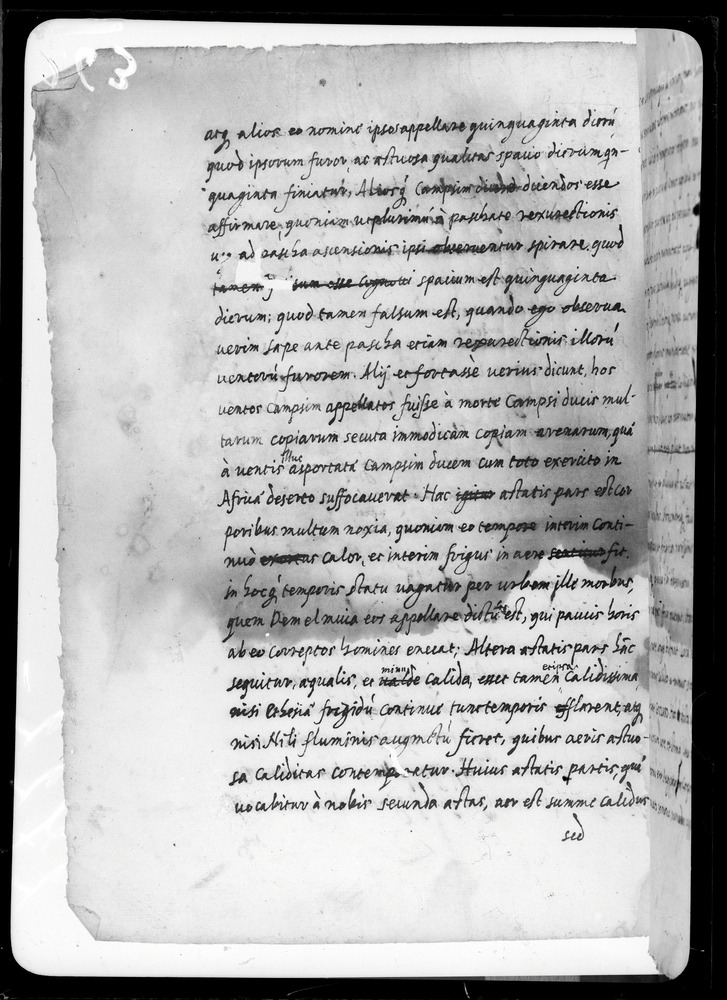 atq; alios eo nomine ipsos appellare quinquaginta dierū
quod ipsorum furor, ac æstuosa qualitas spatio dierum qn-
quaginta finiatur, Aliosq; Campsim ducendos esse
affirmare, quoniam ut plurimū à paschate rexurectionis
ad pascha ascensionis ipsi observentur spirare, quod
spatium est quinquaginta
dierum; quod tamen falsum est, quando ego observa
verim sæpe ante pascha etiam rexurectionis illorū
ventorū furorem. Alij et fortassè verius dicunt, hos
ventos Campsim appellatos fuisse à morte Campsi ducis mul-
tarum copiarum secuta immodicam copiam arenarum, quā
à ventis illuc asportatā Campsim ducem cum toto exercito in
Africæ deserto suffocaverat. Hæc igitur æstatis pars est cor
poribus multum noxia, quoniam eo tempore interim conti-
nuò calor, et interim frigus in aere fit,
in hocq; temporis statu vagatur per urbem ille morbus,
quem Dem el muia eos appellare dictū est, qui paucis horis
ab eo correptos homines enecat; Altera æstatis pars hāc
sequitur, æqualis, et minus valde calida, esset tamen etipsa calidissima,
nisi Ethesiæ frigidū continue tunc temporis efflarent, atq;
nisi Nili fluminis augmētū fieret, quibus aeris æstuo
sa caliditas contemperatur. Huius æstatis partis, quæ
vocabitur à nobis secunda æstas, aer est summe calidus
sed